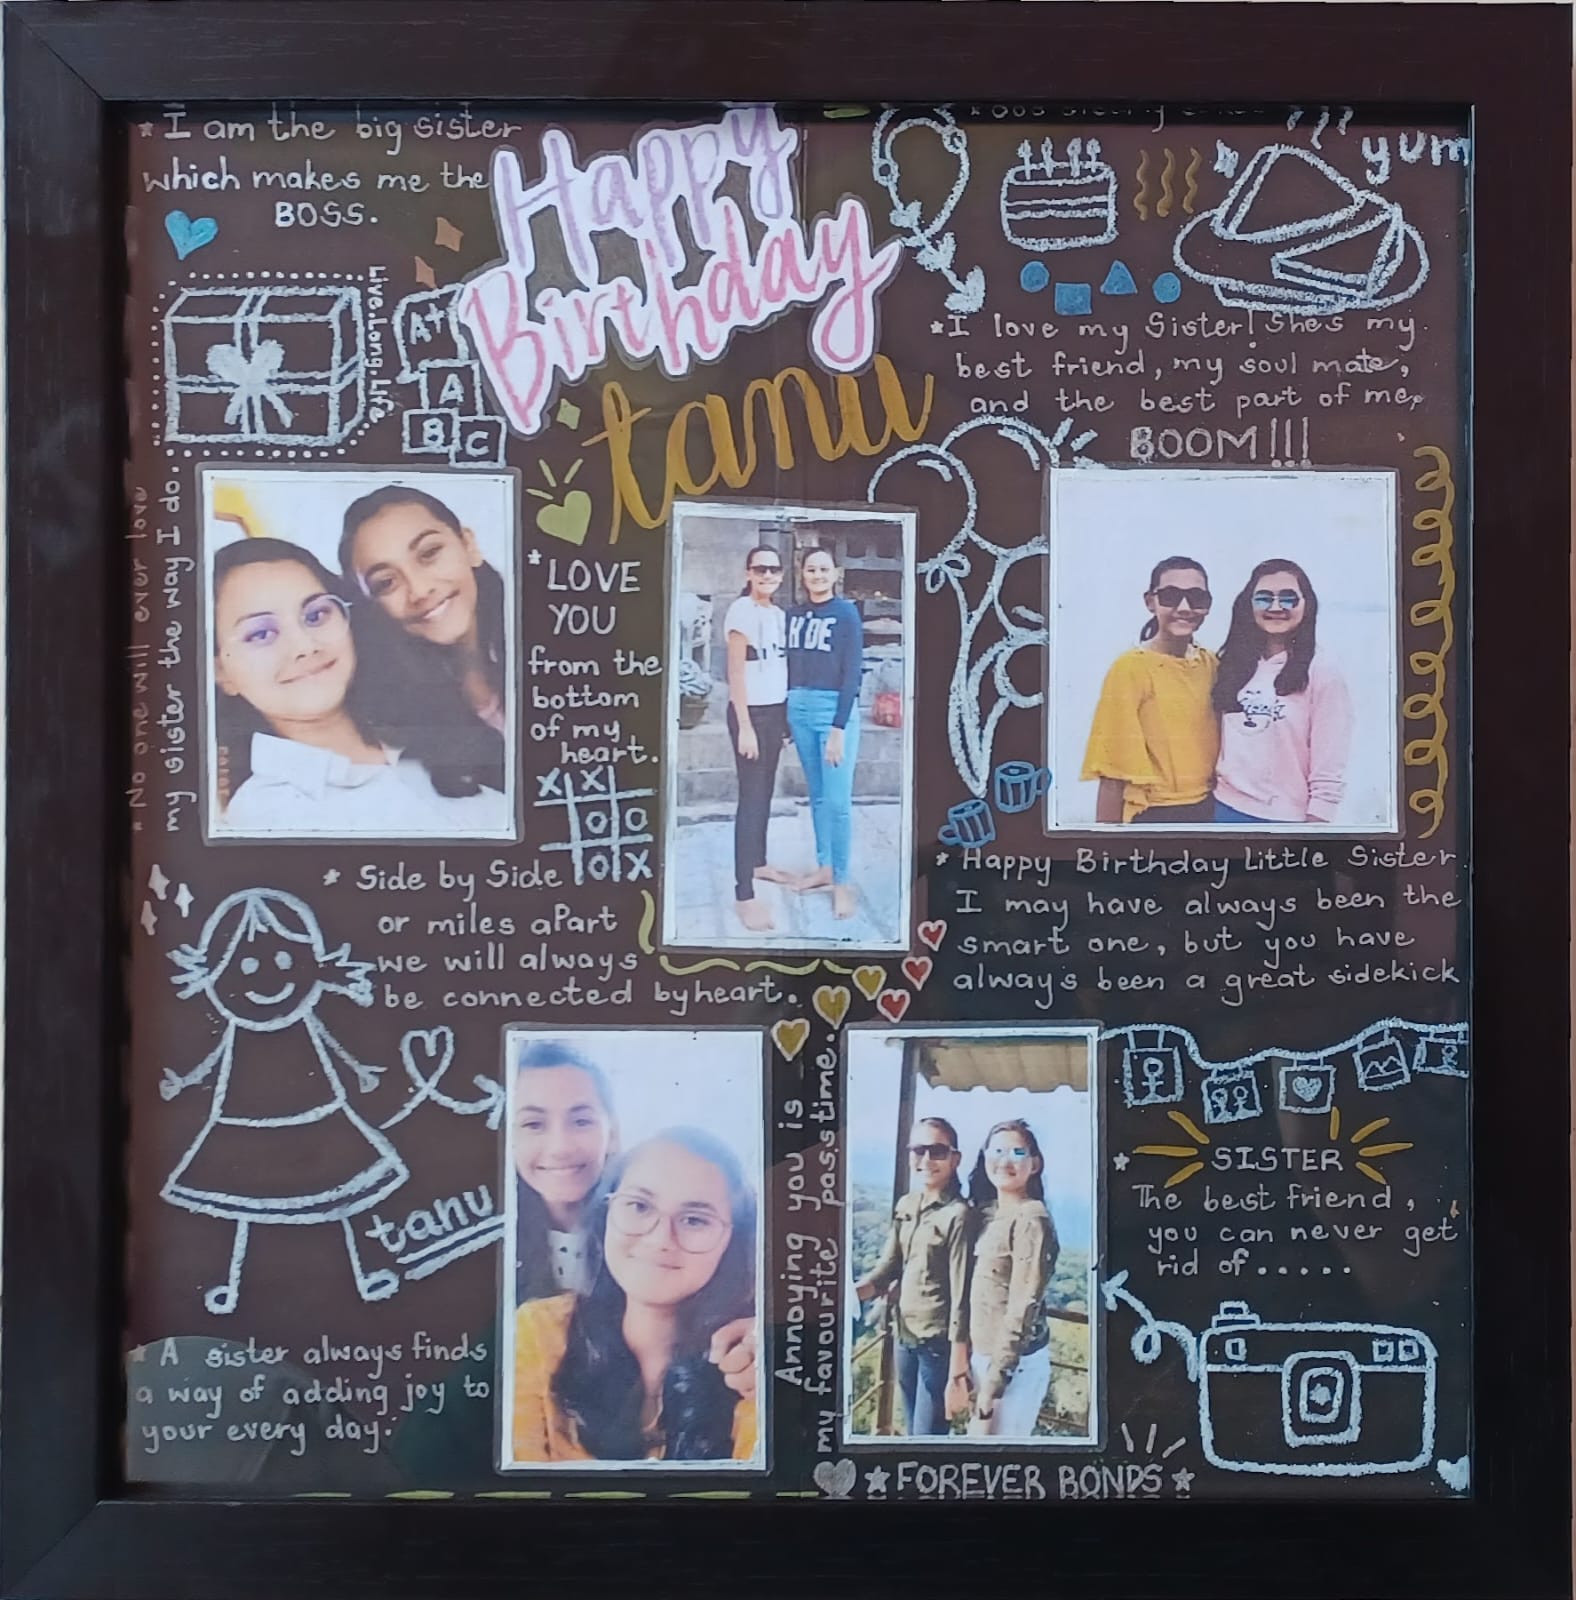 * I am the big sister
which makes me the
BOSS.
Happy
Birthday
tanu
yum
Live.Long.Life
A+
A
B C
* I love my Sister! She's my
best friend, my soul mate,
and the best part of me,
BOOM!!!
* No one will ever love
my sister the way I do.
* LOVE
YOU
from the
bottom
of my
heart.
X X
O O
O X
K'DE
* Side by Side
or miles aPart
we will always
be connected by heart.
* Happy Birthday Little Sister
I may have always been the
smart one, but you have
always been a great sidekick
tanu
Annoying you is
my favourite passtime.
* SISTER
The best friend,
you can never get
rid of.....
* A sister always finds
a way of adding joy to
your every day.
FOREVER BONDS